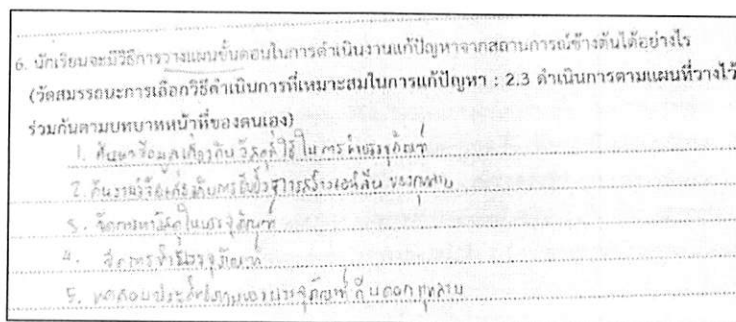 6. นักเรียนจะมีวิธีการวางแผนขั้นตอนในการดำเนินงานแก้ปัญหาจากสถานการณ์ข้างต้นได้อย่างไร
(วัดสมรรถนะการเลือกวิธีดำเนินการที่เหมาะสมในการแก้ปัญหา : 2.3 ดำเนินการตามแผนที่วางไว้
ร่วมกันตามบทบาทหน้าที่ของตนเอง)
1. ค้นหาข้อมูลเกี่ยวกับวัสดุที่ใช้ในการทำบรรจุภัณฑ์
2. ค้นงานวิจัยเกี่ยวกับการยับยั้งการสร้างเอทิลีน ของกุหลาบ
3. จัดการหาวัสดุในบรรจุภัณฑ์
4. จัดการทำบรรจุภัณฑ์
5. ทดสอบประสิทธิภาพของบรรจุภัณฑ์ กับดอกกุหลาบ